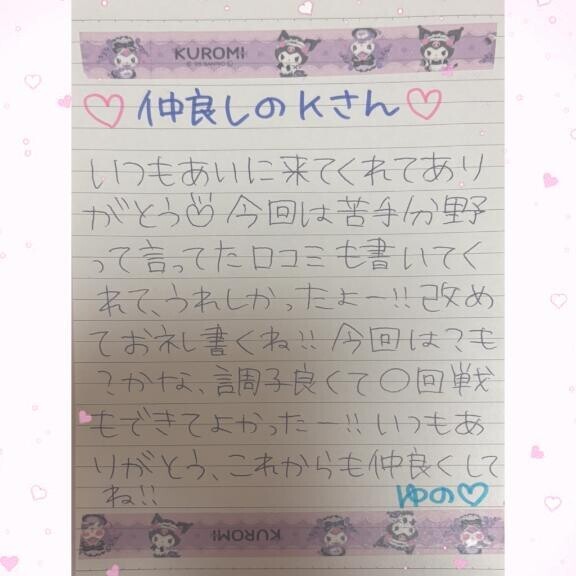 KUROMI
♡仲良しのKさん♡
いつもあいに来てくれてあり
がとう♡今回は苦手分野
って言ってた口コミも書いてく
れて、うれしかったよー!!改め
てお礼書くね!!今回は?も
?かな、調子良くて〇回戦
もできてよかったー!!いつもあ
りがとう、これからも仲良くして
ね!!
ゆの♡
KUROMI